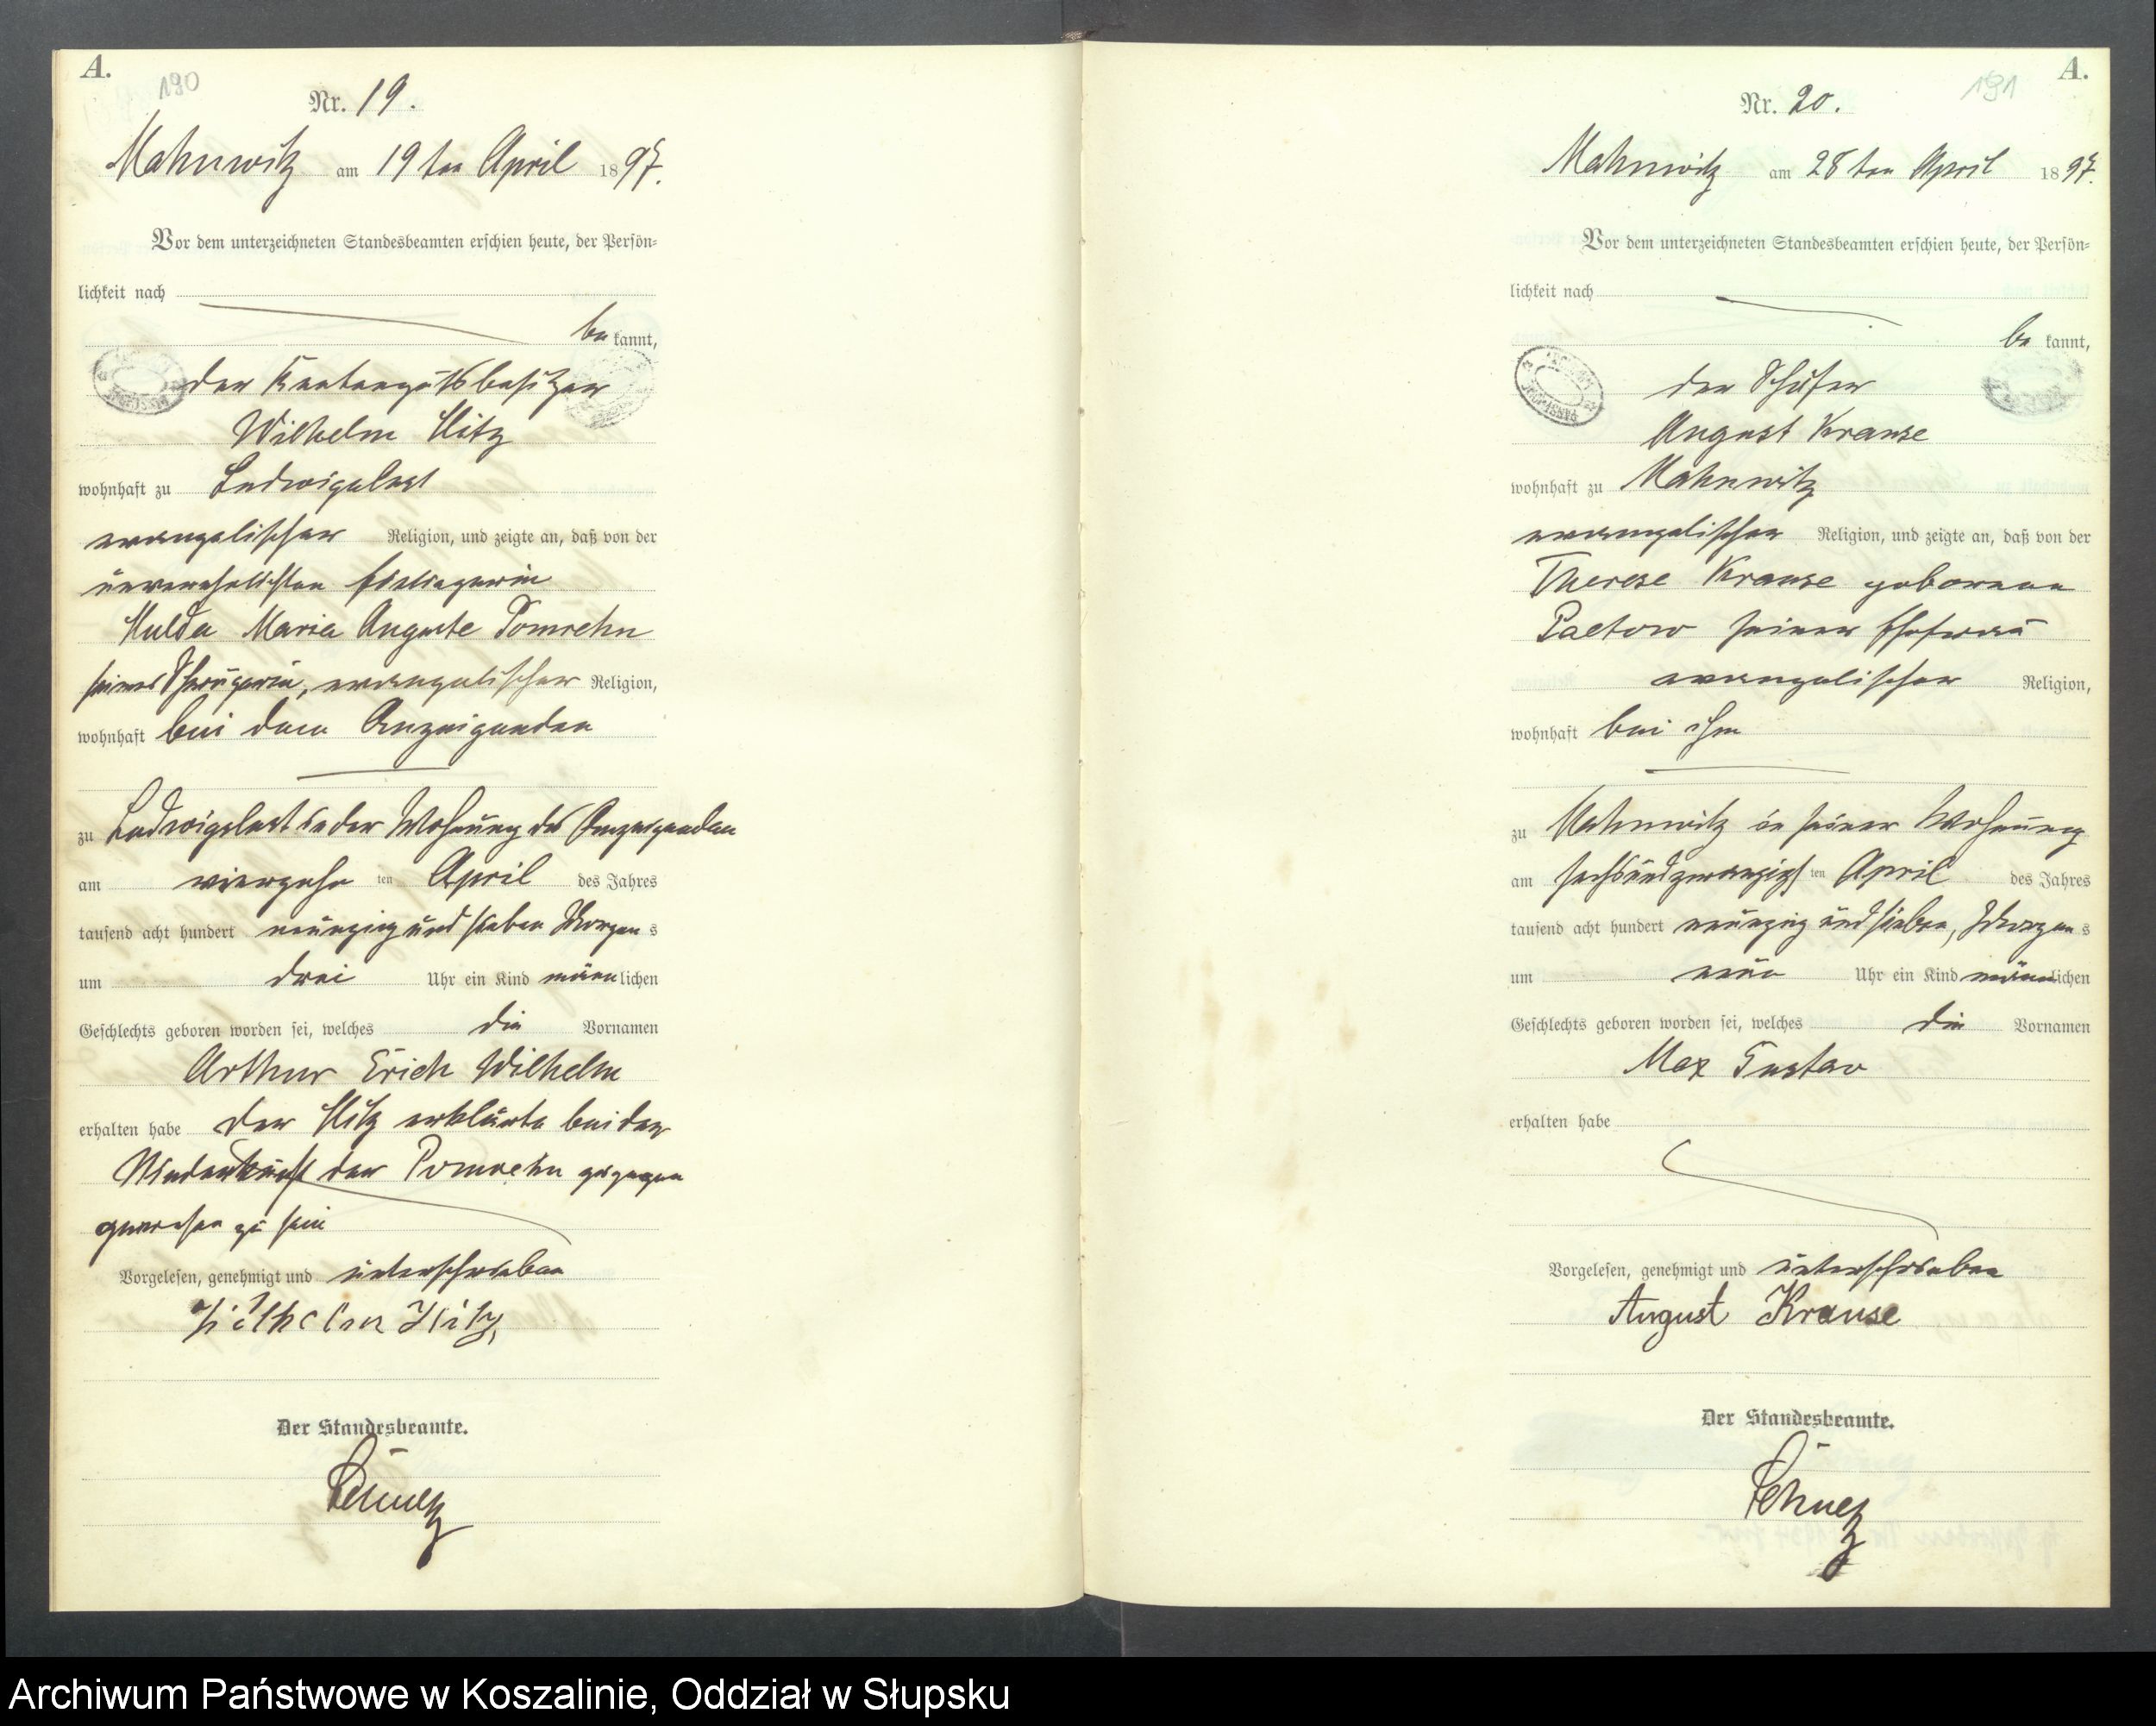 A.
190
Nr. 19.
Mahnwitz am 19ten April 1897.
Vor dem unterzeichneten Standesbeamten erschien heute, der Persön-
lichkeit nach
be kannt,
der Rentengutsbesitzer
Wilhelm Hitz
wohnhaft zu Ludwigslust
evangelischer Religion, und zeigte an, daß von der
unverehelichten
Hulda Maria Auguste Pomrehn
seiner evangelischer Religion,
wohnhaft bei dem Anzeigenden
zu Ludwigslust in der Wohnung des Anzeigenden
am vierzehn ten April des Jahres
tausend acht hundert neunzig und sieben Morgen s
um drei Uhr ein Kind männ lichen
Geschlechts geboren worden sei, welches die Vornamen
Arthur Erich Wilhelm
erhalten habe der Hitz erklärte bei der
Niederkunft der Pomrehn zugegen
gewesen zu sein
Vorgelesen, genehmigt und unterschrieben
Wilhelm Hitz
Der Standesbeamte.
A.
191
Nr. 20.
Mahnwitz am 28ten April 1897.
Vor dem unterzeichneten Standesbeamten erschien heute, der Persön-
lichkeit nach
be kannt,
der Schäfer
August Krause
wohnhaft zu Mahnwitz
evangelischer Religion, und zeigte an, daß von der
Therese Krause geborenen
Paetow seiner Ehefrau
evangelischer Religion,
wohnhaft bei ihm
zu Mahnwitz in seiner Wohnung
am sechsundzwanzigs ten April des Jahres
tausend acht hundert neunzig und sieben, Morgen s
um neun Uhr ein Kind männlichen
Geschlechts geboren worden sei, welches die Vornamen
Max Gustav
erhalten habe
Vorgelesen, genehmigt und unterschrieben
August Krause
Der Standesbeamte.
Archiwum Państwowe w Koszalinie, Oddział w Słupsku